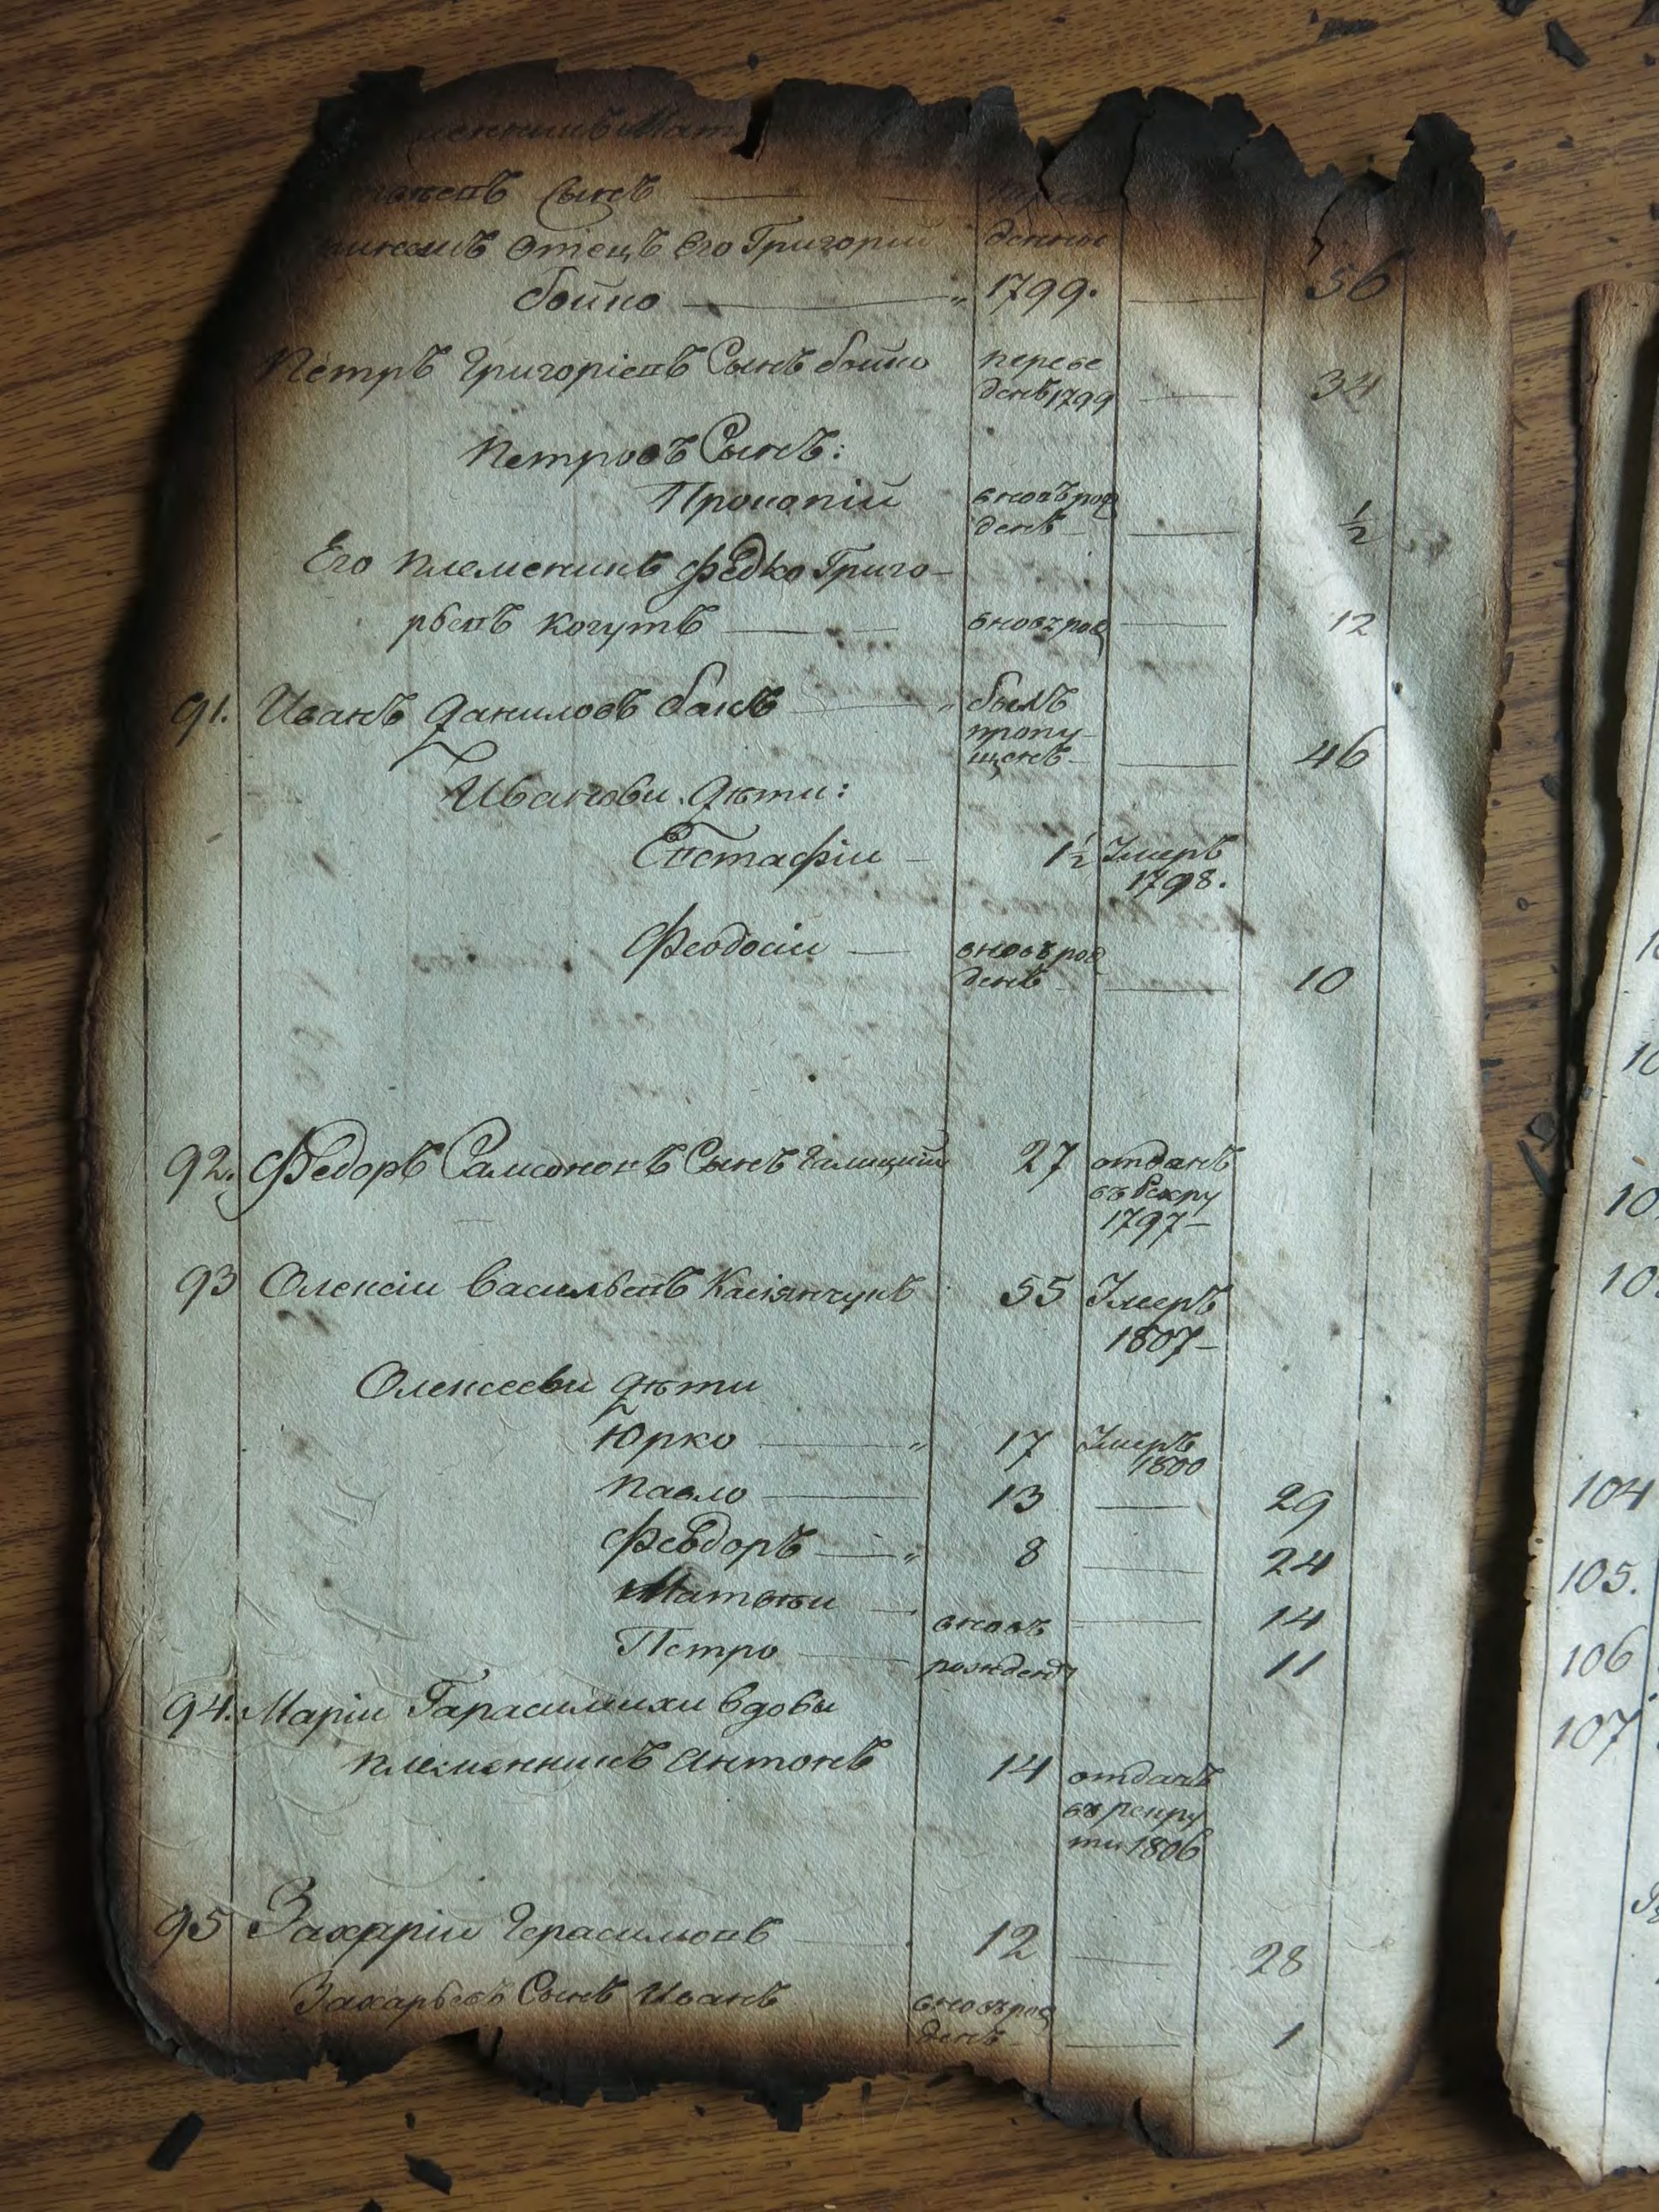 Сынъ
Отецъ Его Григорій дены
бойко 1799. 56
Петръ Григоріевъ Сынъ бойко переве
денъ 1799 34
Петровъ Сынъ:
Прокопій вновь рож
денъ ½
Его племеникъ Федко Григо-
рьевъ Когутъ вновъ рож 12
91. Иванъ Даниловъ былъ
пропу-
щенъ 46
Иванови Дѣти:
Евстафіи 1½ Умеръ
1798.
Феодосіи вновъ рож
денъ 10
92. Федоръ Самсоновъ Сынъ Галицкій 27 отданъ
въ Рекру
1797
93 Олексіи Васильевъ Касіянчукъ 55 Умеръ
1807
Олексееви Дѣти
Юрко 17 Умеръ
1800
Павло 13 29
Феодоръ 8 24
Матвѣи вновъ 14
Петро рожденъ 11
94. Маріи Гарасимихи вдовы
племенникъ Антонъ 14 отданъ
въ рекру
ти 1806
95 Захаріи Герасимовъ 12 28
Захарьевъ Сынъ Иванъ вновъ рож
денъ 1
10
104
105.
106
107